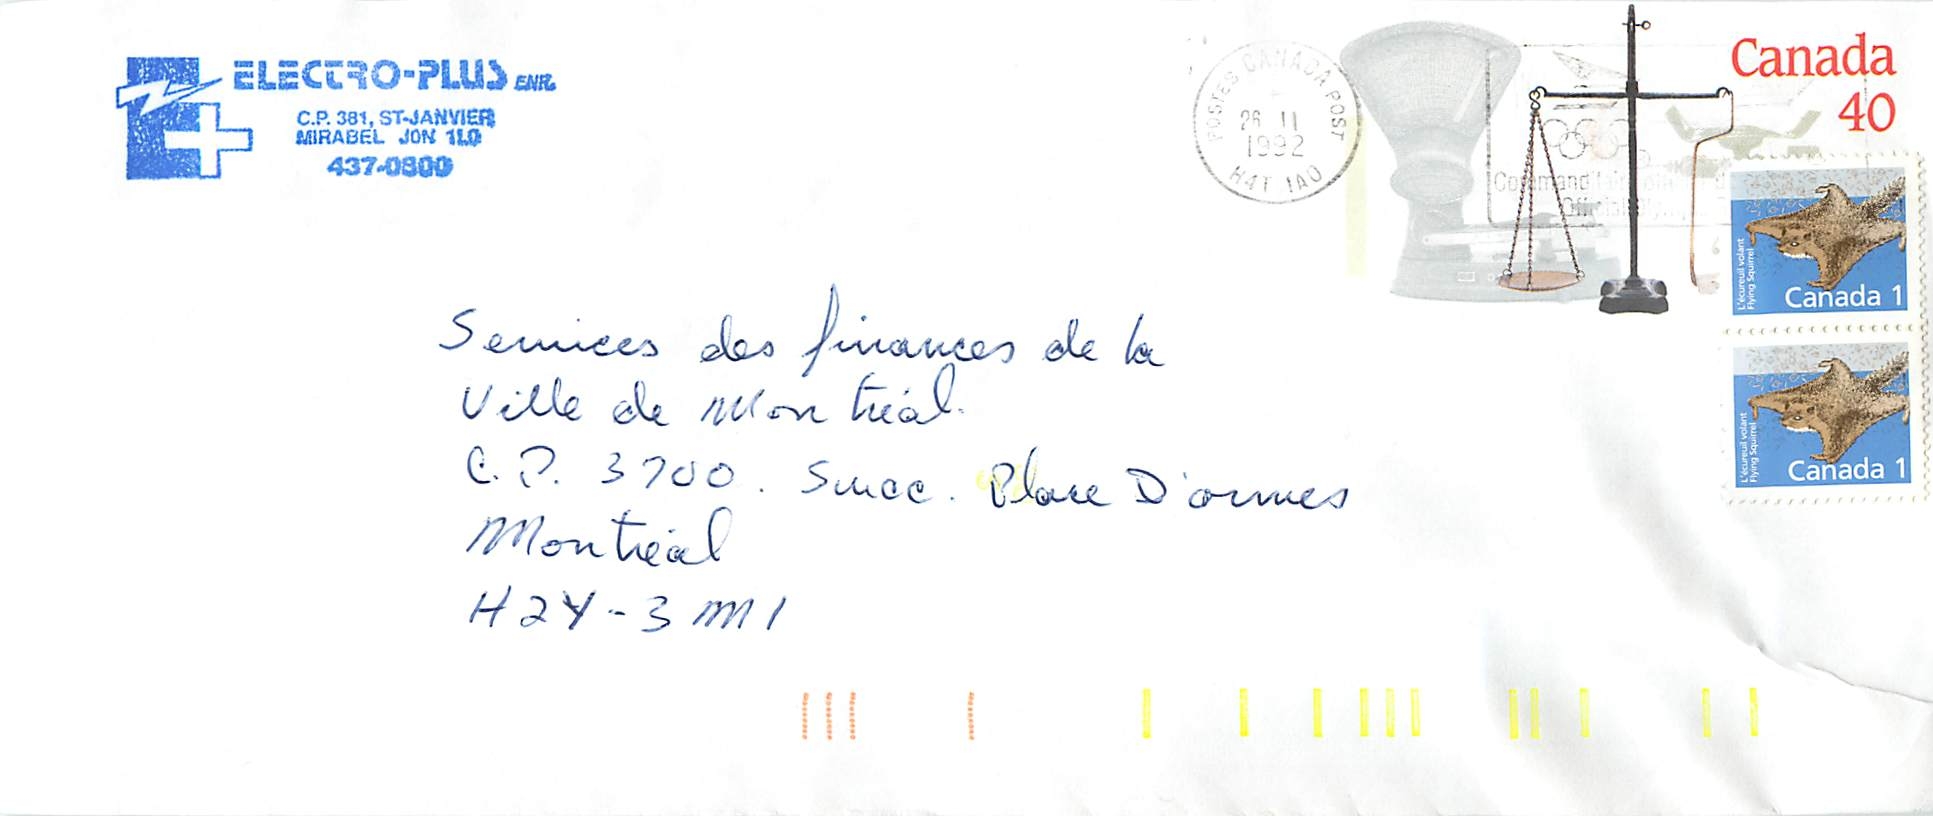 ELECTRO-PLUS ENR.
C.P. 381, ST-JANVIER
MIRABEL J0N 1L0
437-0800
POSTES CANADA POST
26 II
1992
H4T 1A0
Canada
40
L'écureuil volant
Flying Squirrel
Canada 1
L'écureuil volant
Flying Squirrel
Canada 1
Services des finances de la
Ville de Montréal.
C.P. 3700. Succ. Place D'armes
Montréal
H2Y-3M1